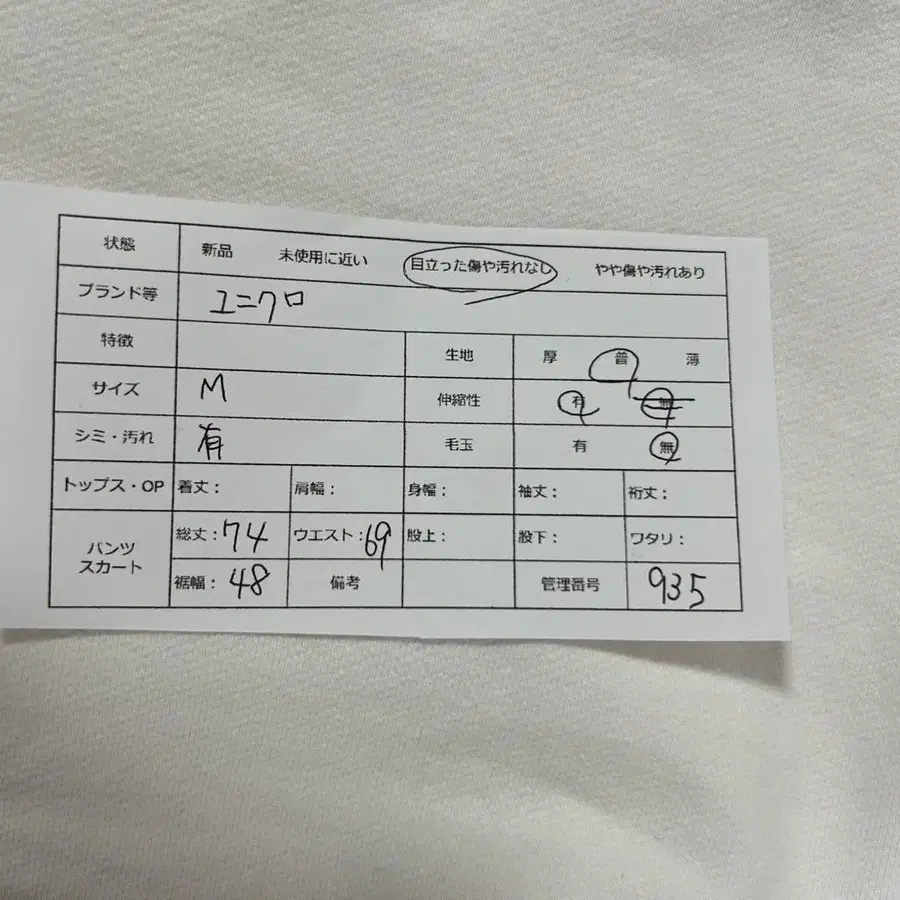 状態 新品 未使用に近い 目立った傷や汚れなし やや傷や汚れあり
ブランド等 ユニクロ
特徴 生地 厚 普 薄
サイズ M 伸縮性 有 無
シミ・汚れ 有 毛玉 有 無
トップス・OP 着丈: 肩幅: 身幅: 袖丈: 裄丈:
パンツ スカート 総丈:74 ウエスト:69 股上: 股下: ワタリ:
裾幅:48 備考 管理番号 935